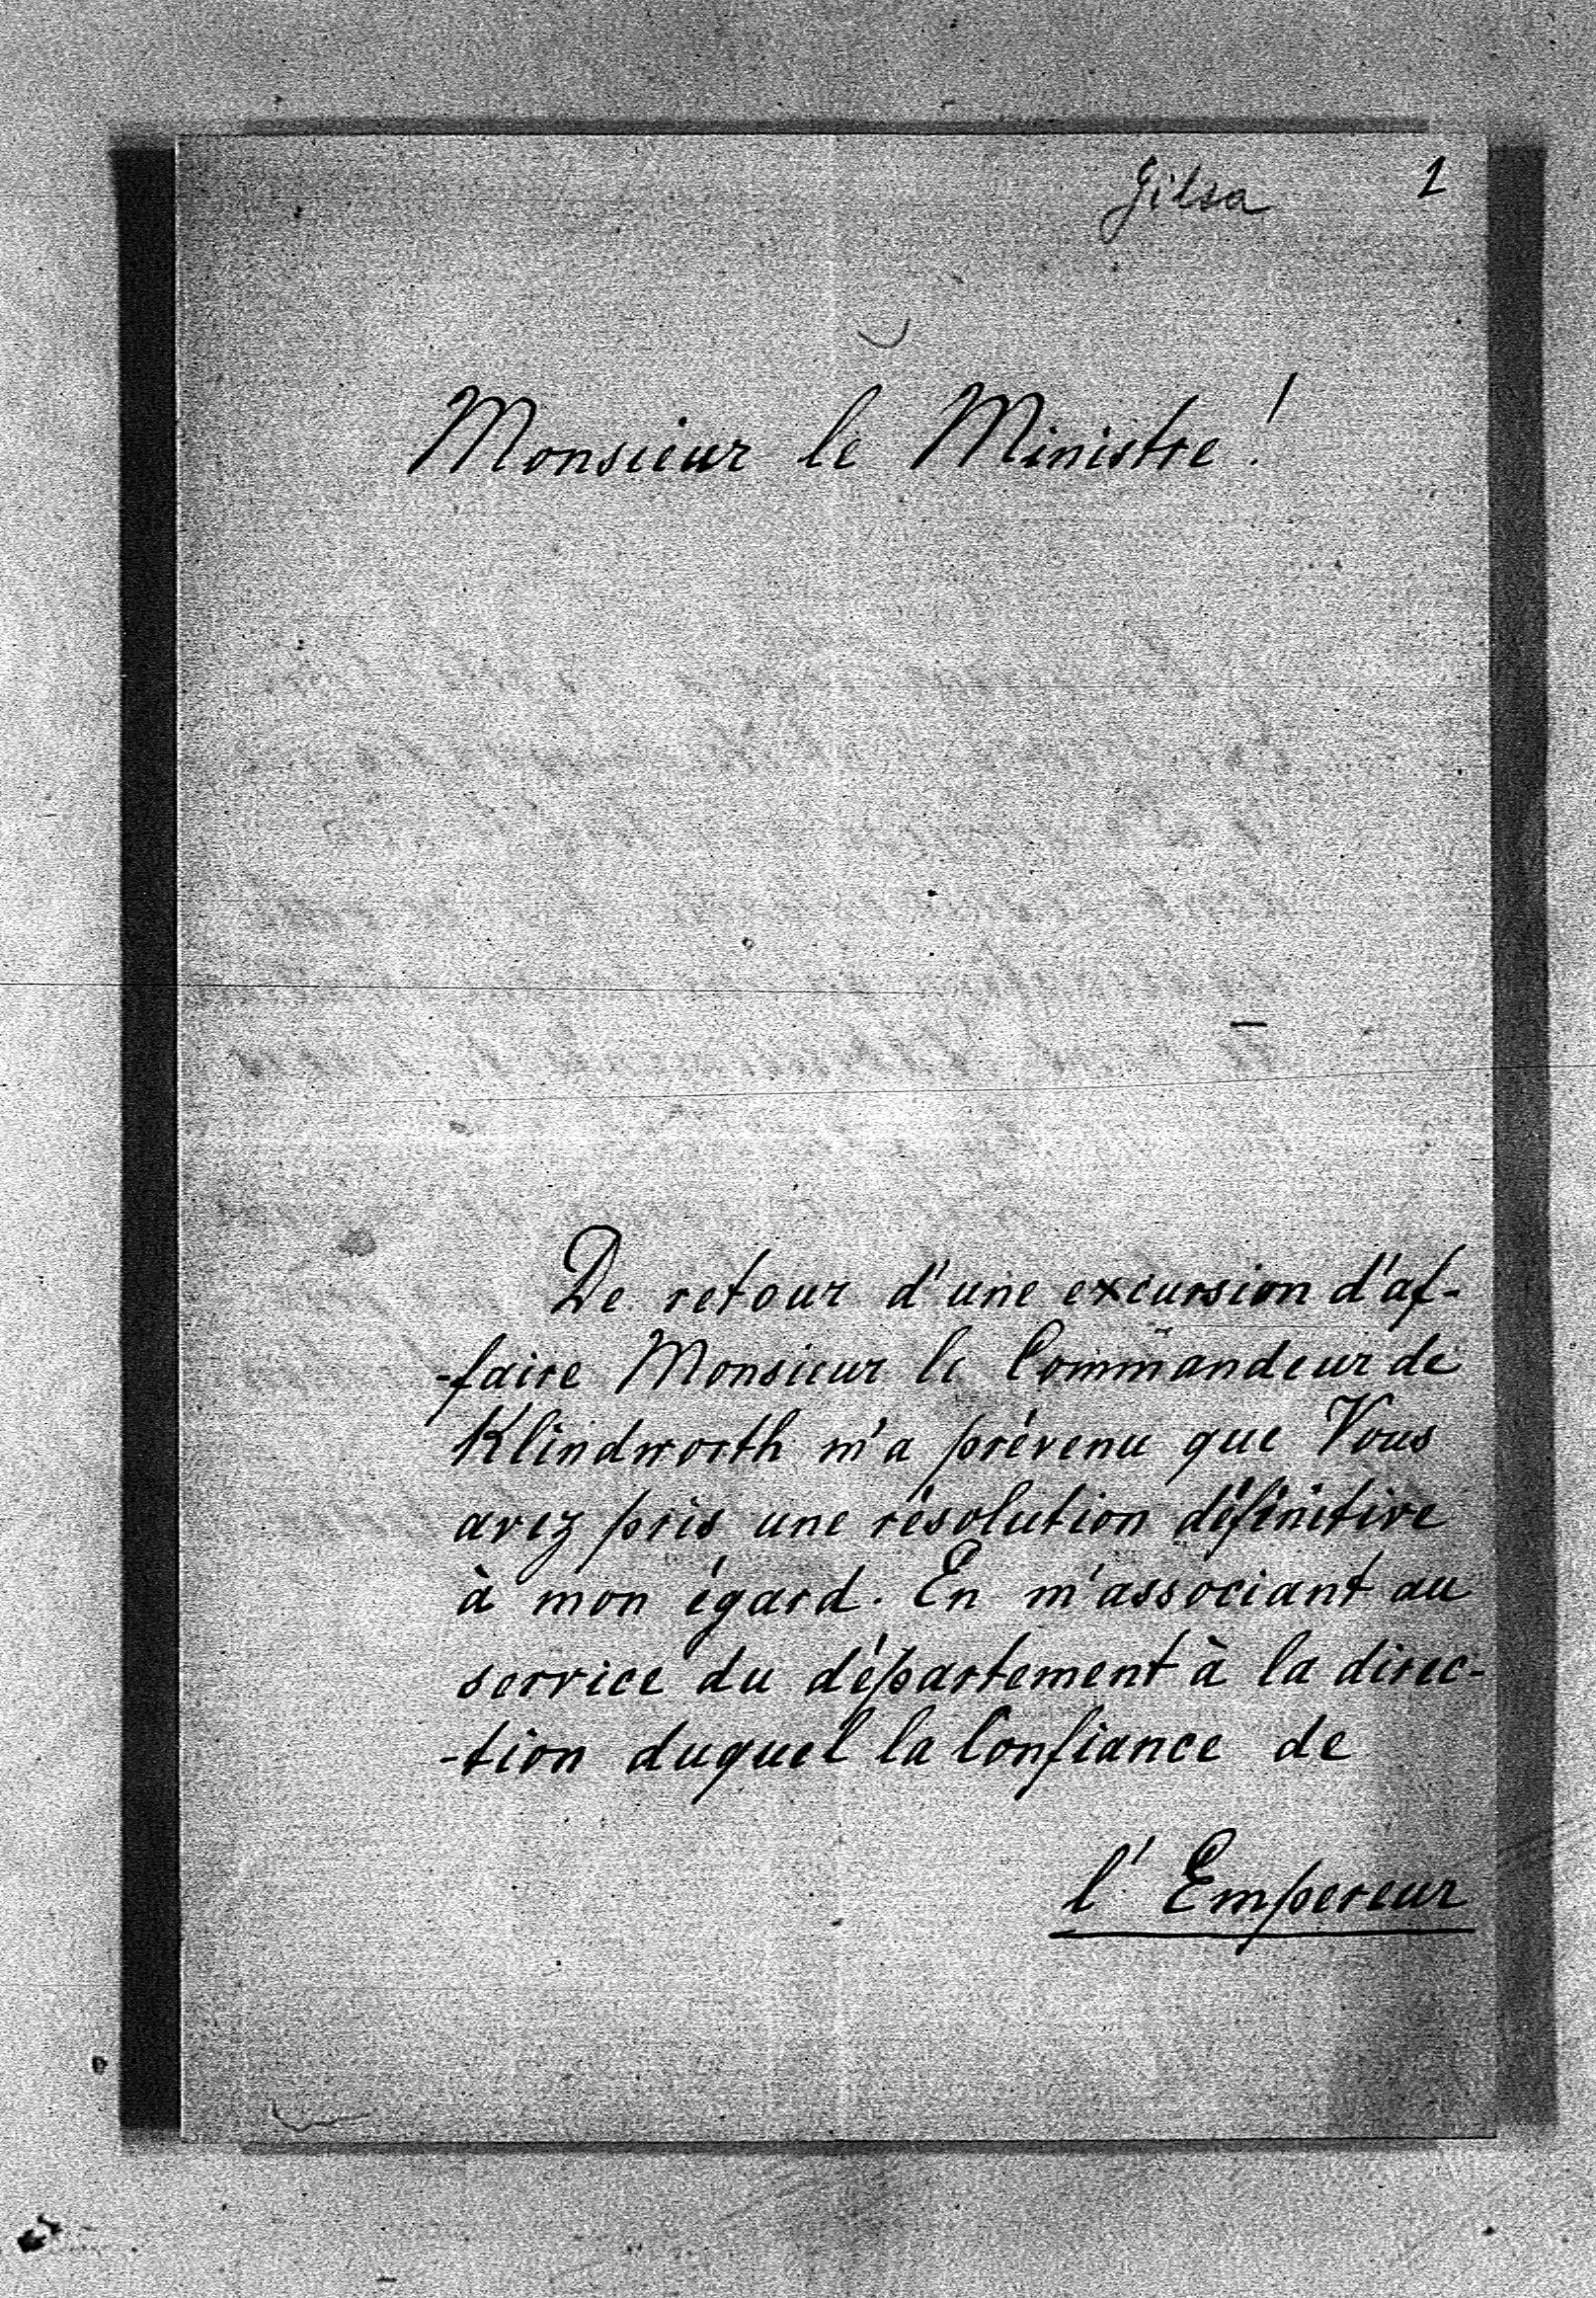 Gilsa 1
Monsieur le Ministre!
De retour d'une excursion d'af-
-faire Monsieur le Commandeur de
Klindworth m'a prévenu que Vous
avez pris une résolution définitive
à mon égard. En m'associant au
service du département à la direc-
-tion duquel la Confiance de
l'Empereur